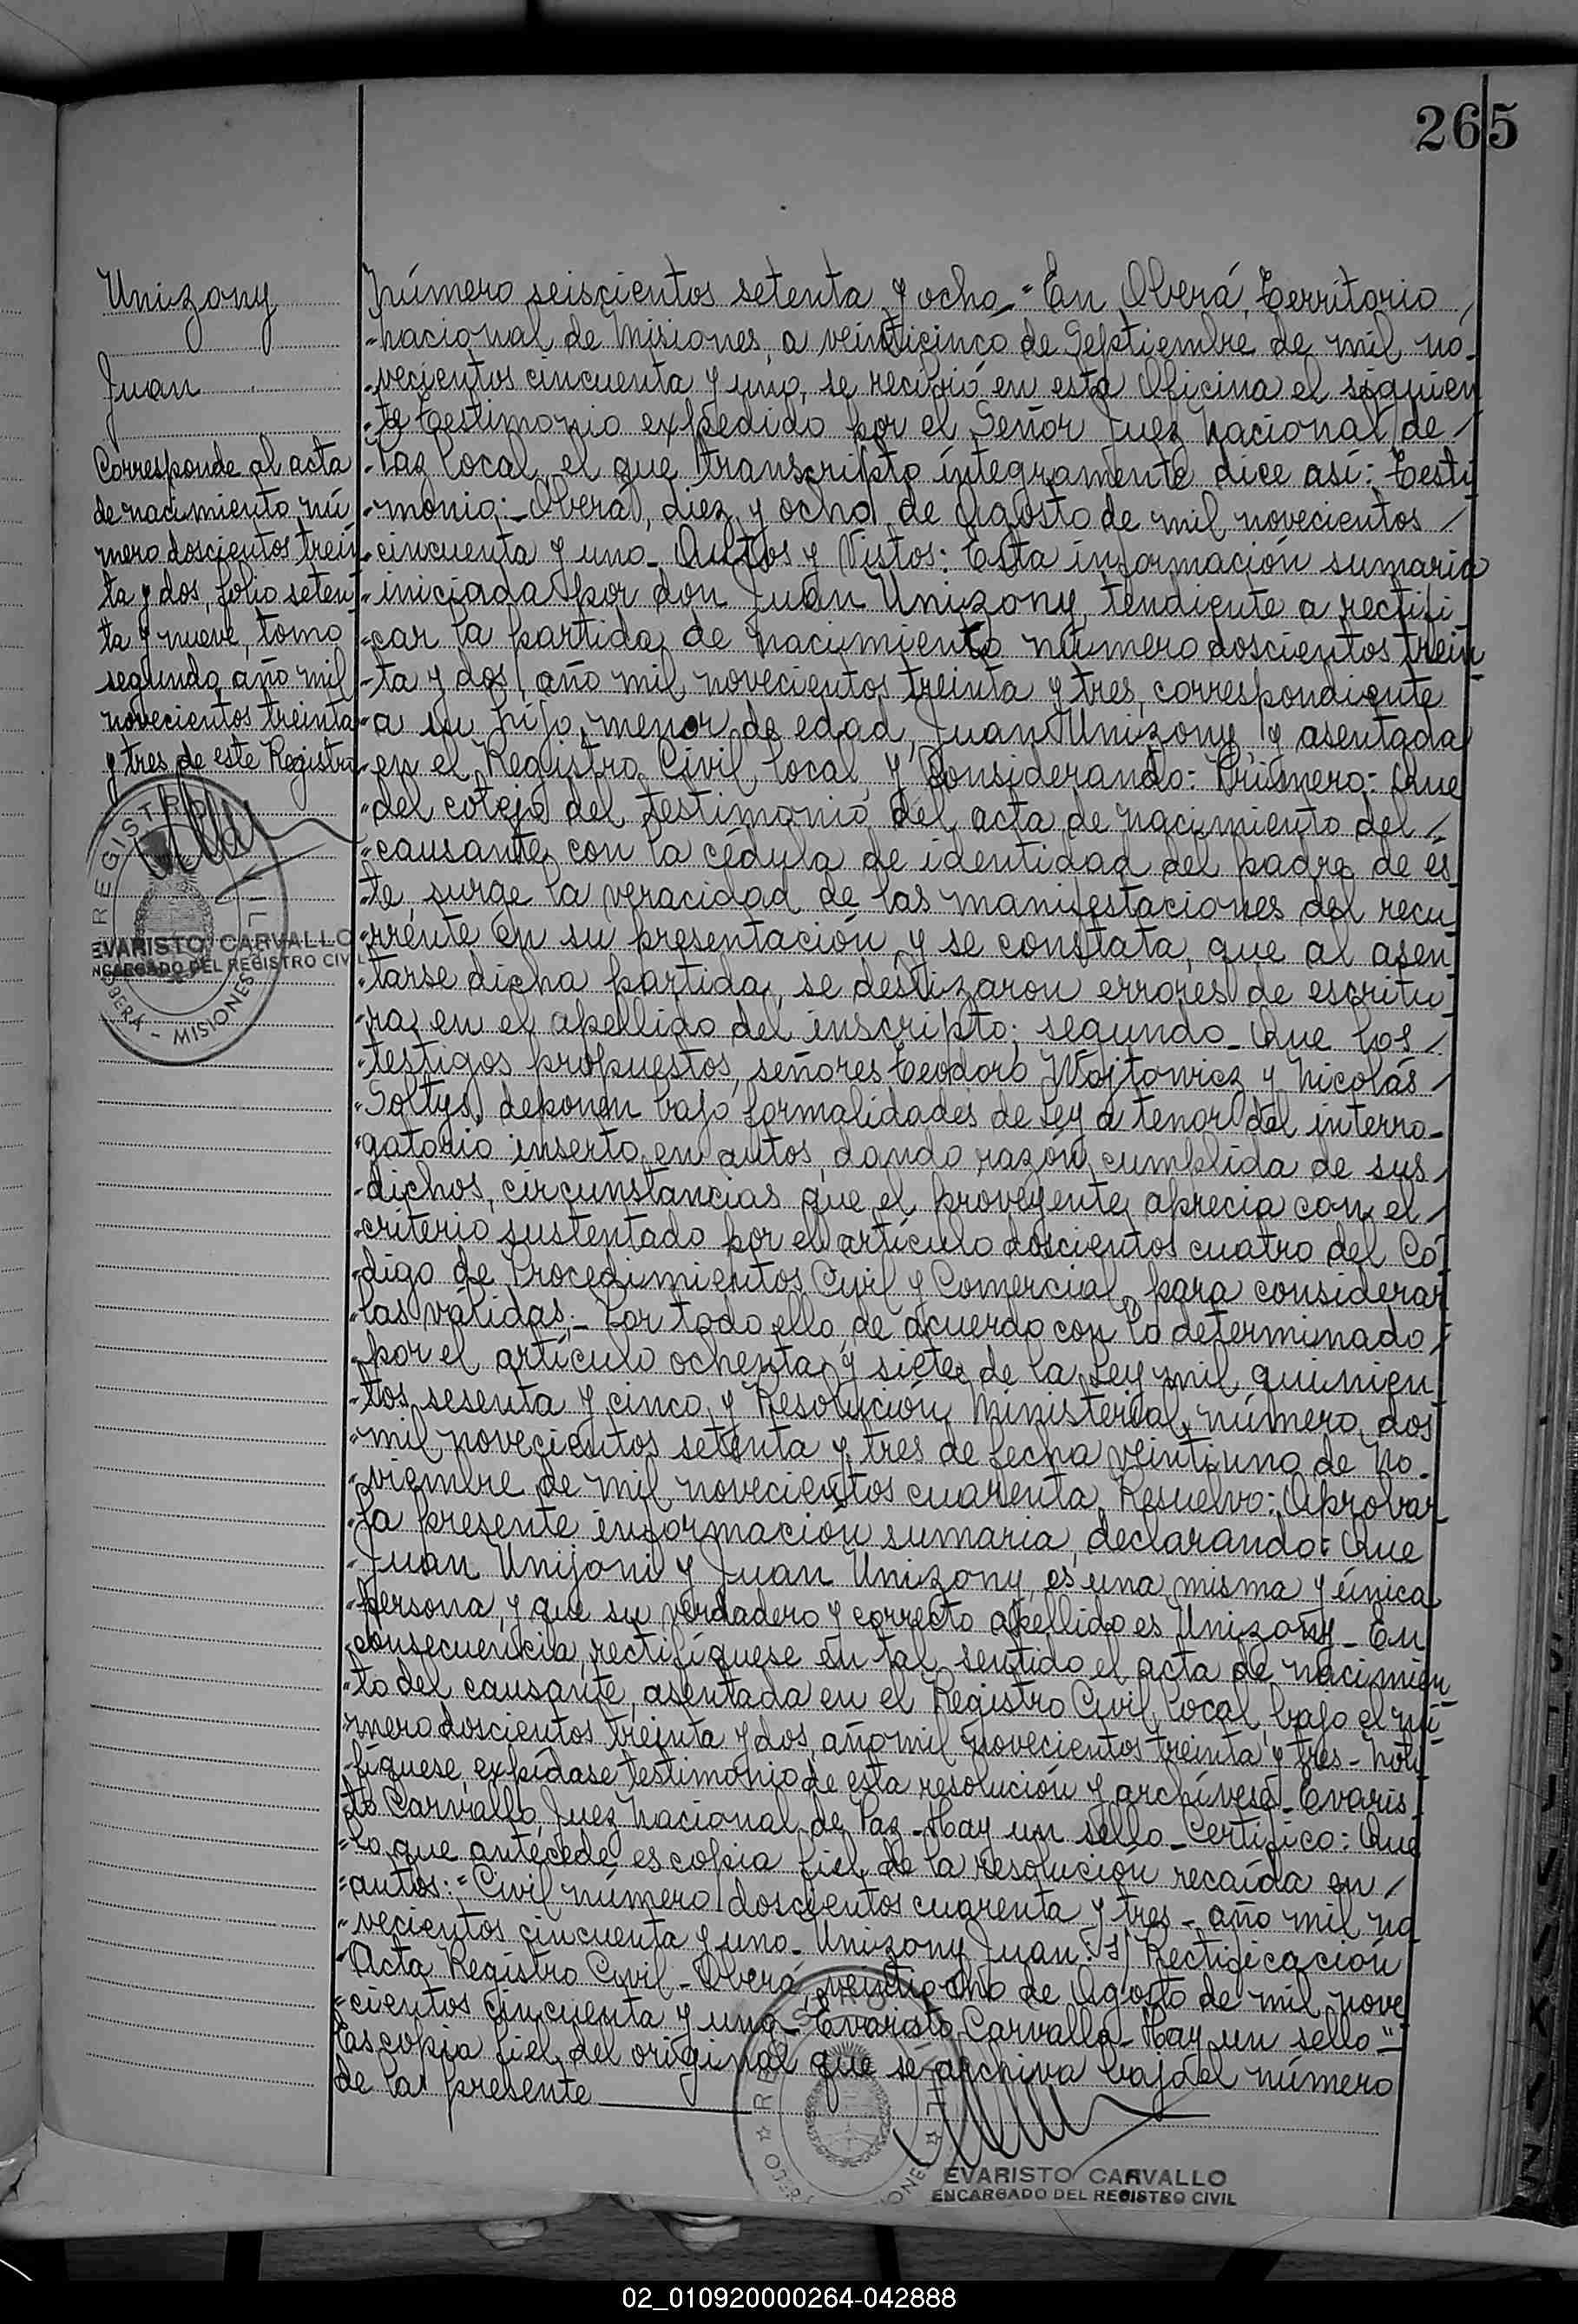 265
Unizony
Juan
Corresponde al acta
de nacimiento nú-
mero doscientos trein-
ta y dos, folio seten-
ta y nueve, tomo
segundo, año mil
novecientos treinta
y tres de este Registro
REGISTRO CIVIL
EVARISTO CARVALLO
ENCARGADO DEL REGISTRO CIVIL
OBERÁ - MISIONES
Número seiscientos setenta y ocho.- En Oberá, Territorio
nacional de Misiones, a veinticinco de Septiembre de mil no-
vecientos cincuenta y uno, se recibió en esta Oficina el siguien
te testimonio expedido por el Señor Juez Nacional de
Paz local, el que transcripto íntegramente dice así: Testi
monio:- Oberá, diez y ocho de Agosto de mil novecientos
cincuenta y uno- Autos y Vistos: Esta información sumaria
iniciada por don Juan Unizony, tendiente a rectifi
car la partida de nacimiento número doscientos trein
ta y dos, año mil novecientos treinta y tres, correspondiente
a su hijo, menor de edad, Juan Unizony y asentada
en el Registro Civil local, y Considerando: Primero: Que
del cotejo del testimonio del acta de nacimiento del
causante con la cédula de identidad del padre de és
te, surge la veracidad de las manifestaciones del recu
rrente en su presentación y se constata, que al asen
tarse dicha partida, se deslizaron errores de escritu
ra en el apellido del inscripto; segundo- Que los
testigos propuestos, señores Teodoro Wojtowicz y Nicolás
Soltys, deponen bajo formalidades de Ley a tenor del interro-
gatorio inserto en autos, dando razón cumplida de sus
dichos, circunstancias que el proveyente aprecia con el
criterio sustentado por el artículo doscientos cuatro del Có
digo de Procedimientos Civil y Comercial, para considerar
las válidas.- Por todo ello, de acuerdo con lo determinado
por el artículo ochenta y siete de la Ley mil quinien
tos sesenta y cinco y Resolución Ministerial número dos
mil novecientos setenta y tres de fecha veintiuno de No-
viembre de mil novecientos cuarenta, Resuelvo: Aprobar
la presente información sumaria, declarando: Que
Juan Unijoni y Juan Unizony, es una misma y única
persona, y que su verdadero y correcto apellido es Unizony- En
consecuencia, rectifíquese en tal sentido el acta de nacimien
to del causante, asentada en el Registro Civil local, bajo el nú-
mero doscientos treinta y dos, año mil novecientos treinta y tres- Noti
fíquese, expídase testimonio de esta resolución y archívese- Evaris
to Carvallo, Juez Nacional de Paz- Hay un sello- Certifico: Que
lo que antecede es copia fiel de la resolución recaída en
autos:- Civil número doscientos cuarenta y tres- año mil no
vecientos cincuenta y uno- Unizony Juan: s/ Rectificación
Acta Registro Civil- Oberá, veintiocho de Agosto de mil nove
cientos cincuenta y uno- Evaristo Carvallo- Hay un sello"-
Es copia fiel del original que se archiva bajo el número
de la presente
EVARISTO CARVALLO
ENCARGADO DEL REGISTRO CIVIL
02_010920000264-042888